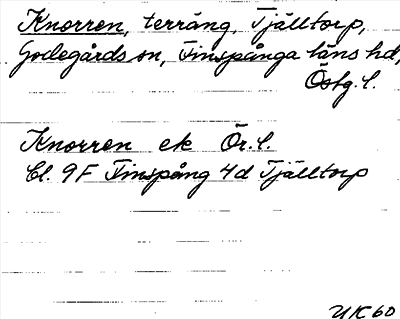 Knorren, terräng, Tjälltorp,
Godegårds sn, Finspånga läns hd,
Östg. l.
Knorren ek Ör. l.
Bl. 9F Finspång 4d Tjälltorp
UK 60